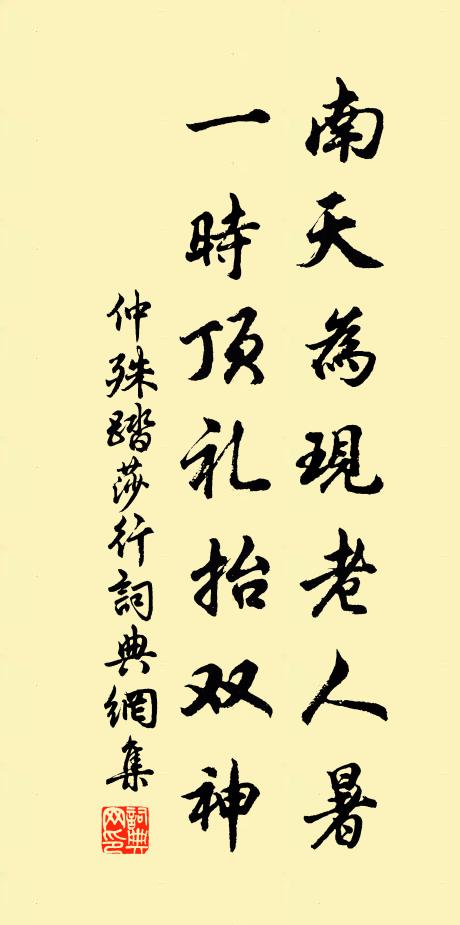 南天為現老人暑
一時顶礼抬双神
仲殊踏莎行詞典網集
詞典网印